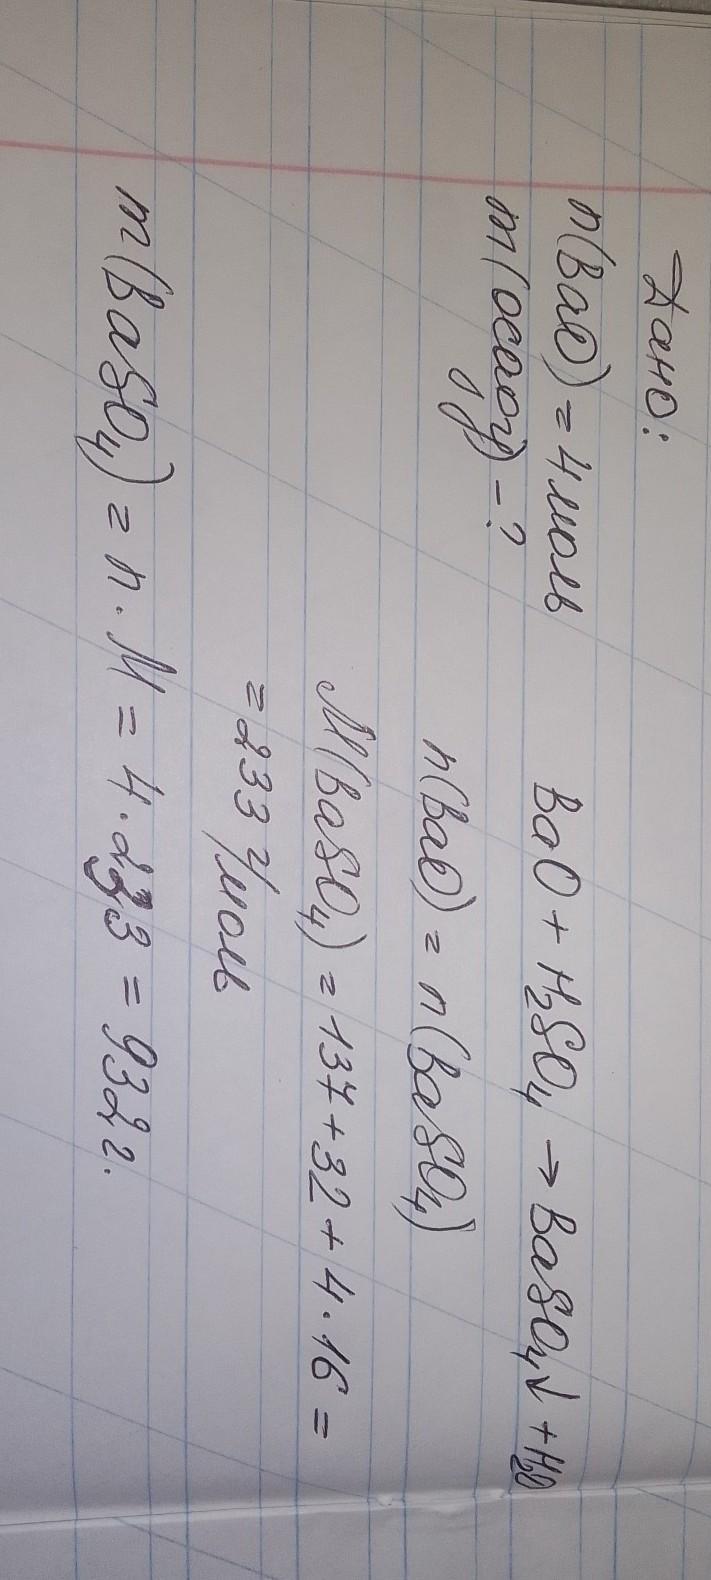 Дано:
n(BaO) = 4 моль
m(осаду) - ?
BaO + H₂SO₄ → BaSO₄↓ + H₂O
n(BaO) = n(BaSO₄)
M(BaSO₄) = 137 + 32 + 4 · 16 =
= 233 г/моль
m(BaSO₄) = n · M = 4 · 233 = 932 г.